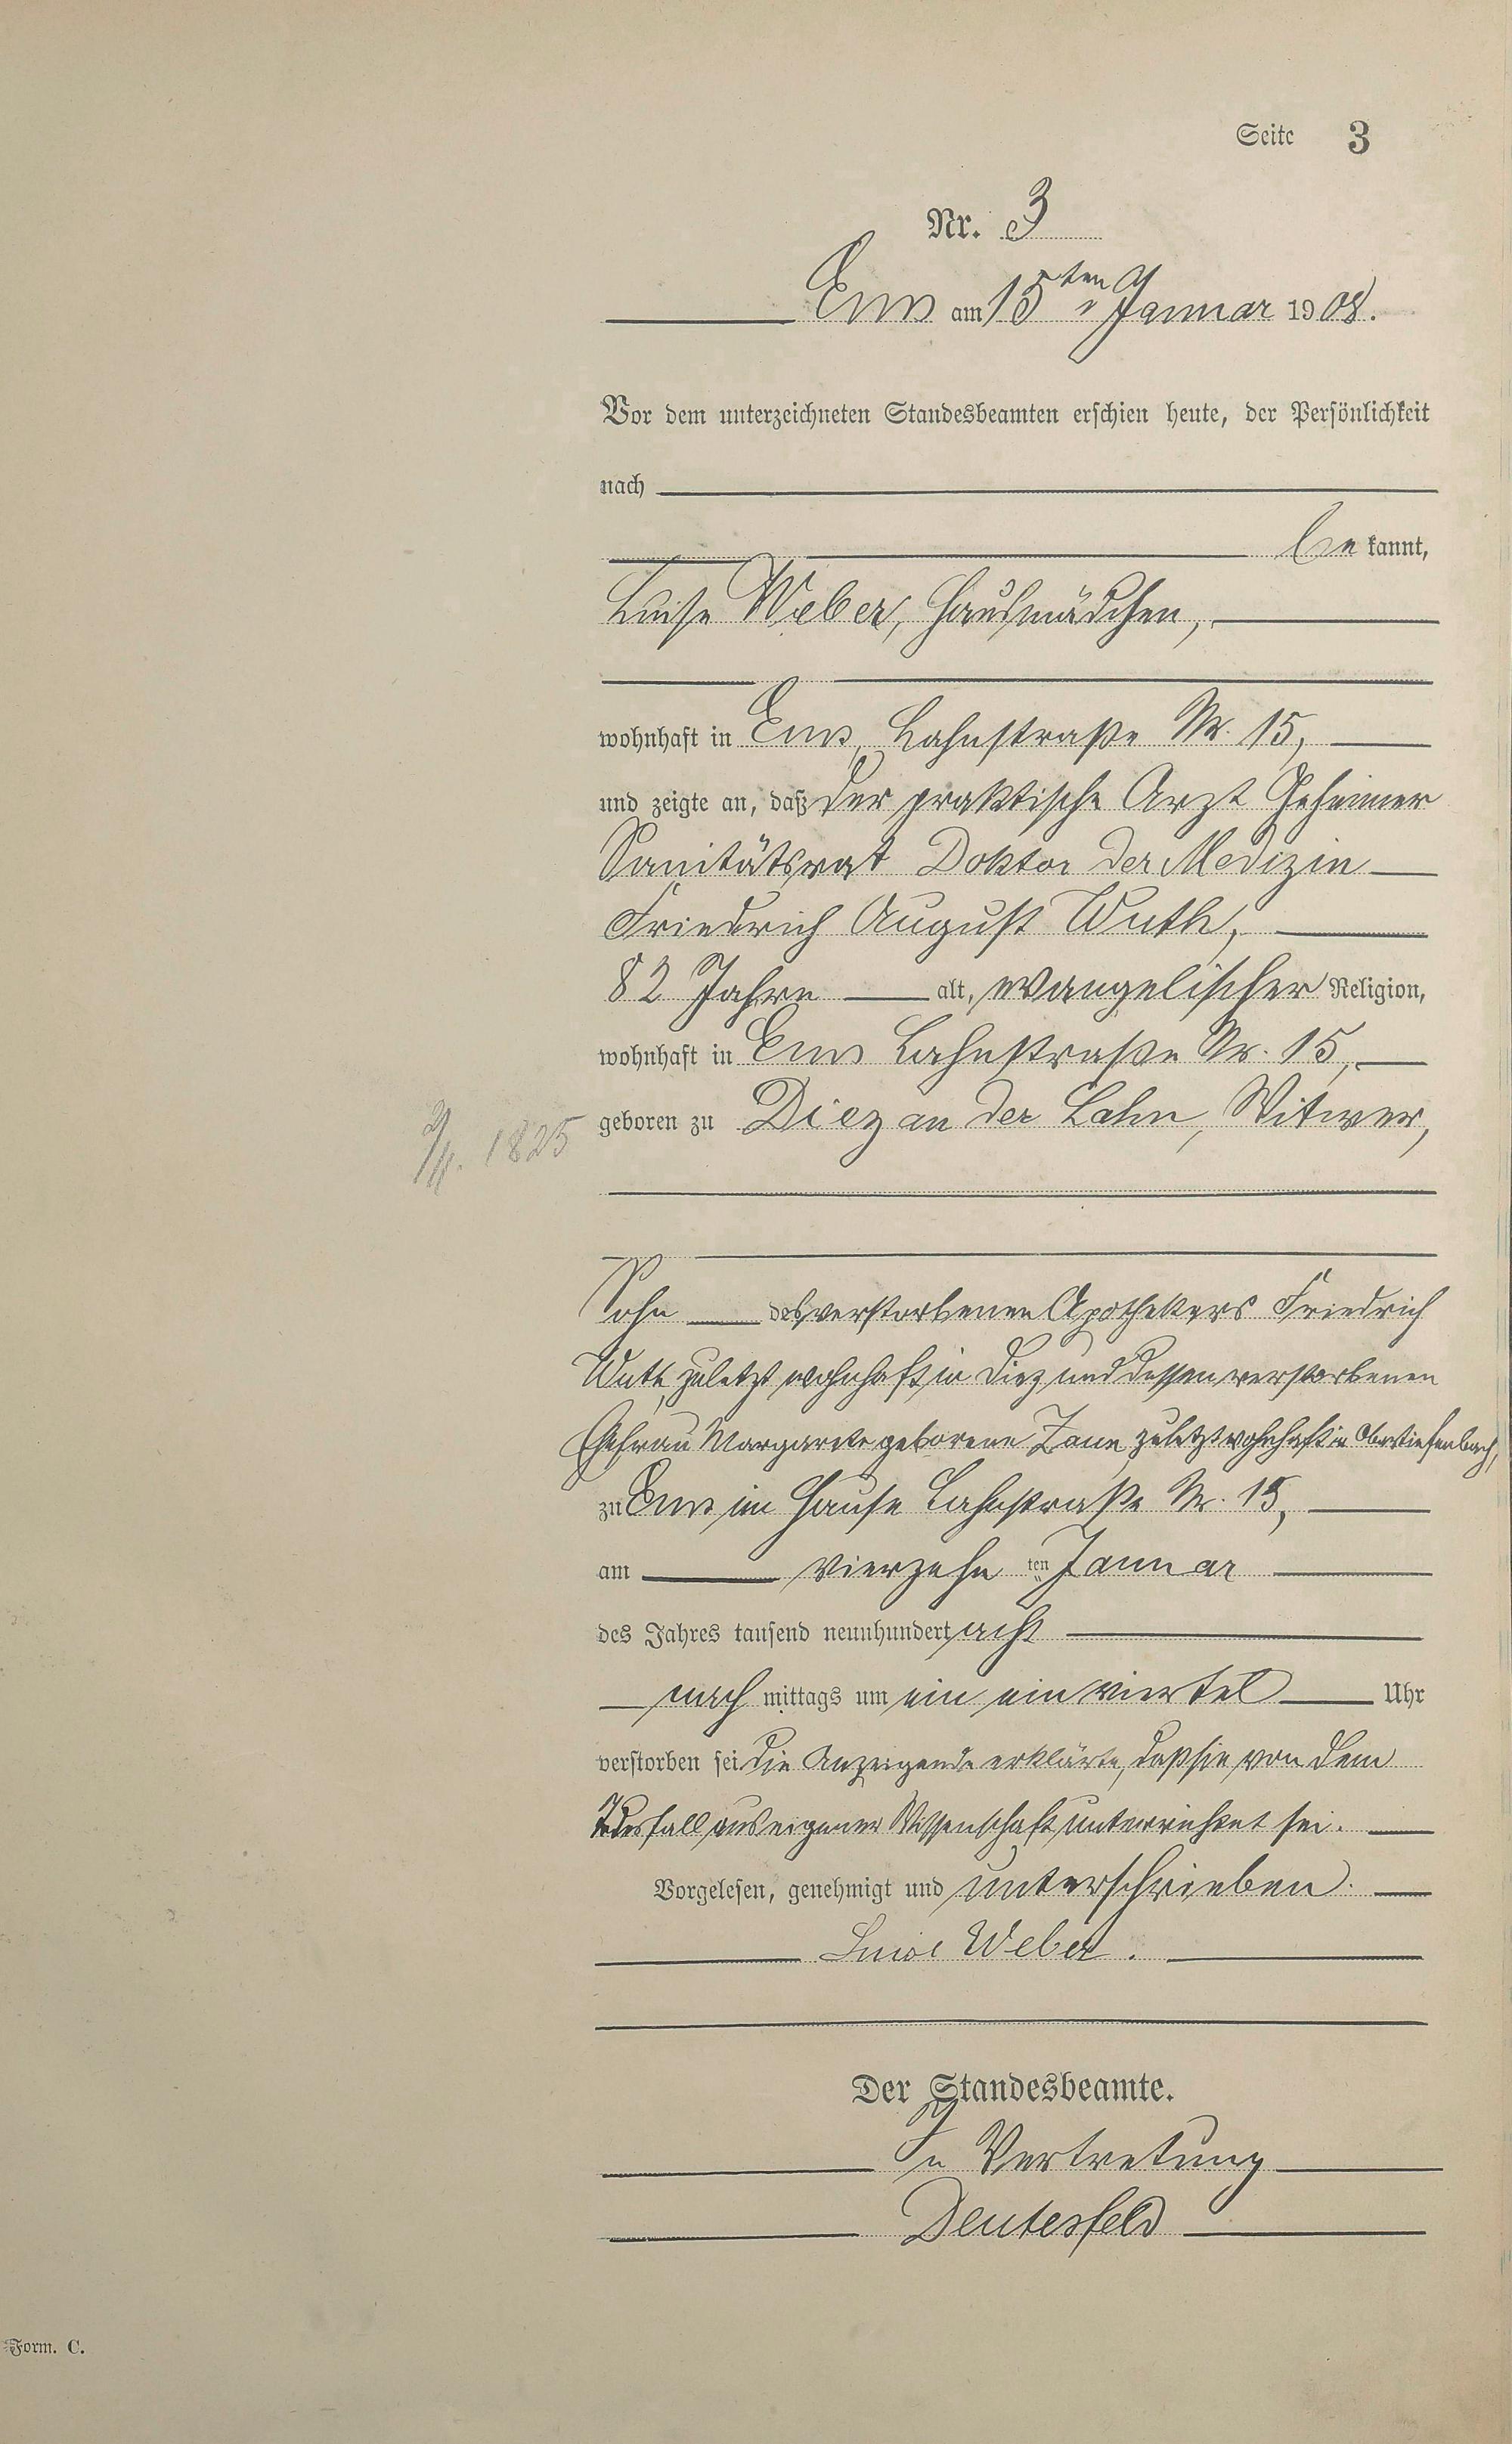 Seite 3
Nr. 3
Ems am 15ten Januar 1908.
Vor dem unterzeichneten Standesbeamten erschien heute, der Persönlichkeit
nach
be kannt,
Luise Weber, Hausmädchen,
wohnhaft in Ems, Lahnstraße Nr. 15,
und zeigte an, daß der praktische Arzt Geheimer
Sanitätsrat Doktor der Medizin
Friedrich August Wuth,
82 Jahre alt, evangelischer Religion,
wohnhaft in Ems Lahnstraße Nr. 15,
geboren zu Diez an der Lahn, Witwer,
1825
Sohn des verstorbenen Apothekers Friedrich
Wuth, zuletzt wohnhaft in Diez und dessen verstorbenen
Ehefrau Margarete geborene zuletzt wohnhaft in Obertiefenbach,
zu Ems im Hause Lahnstraße Nr. 15,
am vierzehn ten Januar
des Jahres tausend neunhundert acht
nach mittags um ein ein viertel Uhr
verstorben sei. Die Anzeigende erklärte, daß sie von dem
Todesfall aus eigener Wissenschaft unterrichtet sei.
Vorgelesen, genehmigt und unterschrieben.
Luise Weber.
Der Standesbeamte.
In Vertretung
Deutesfeld
Form. C.